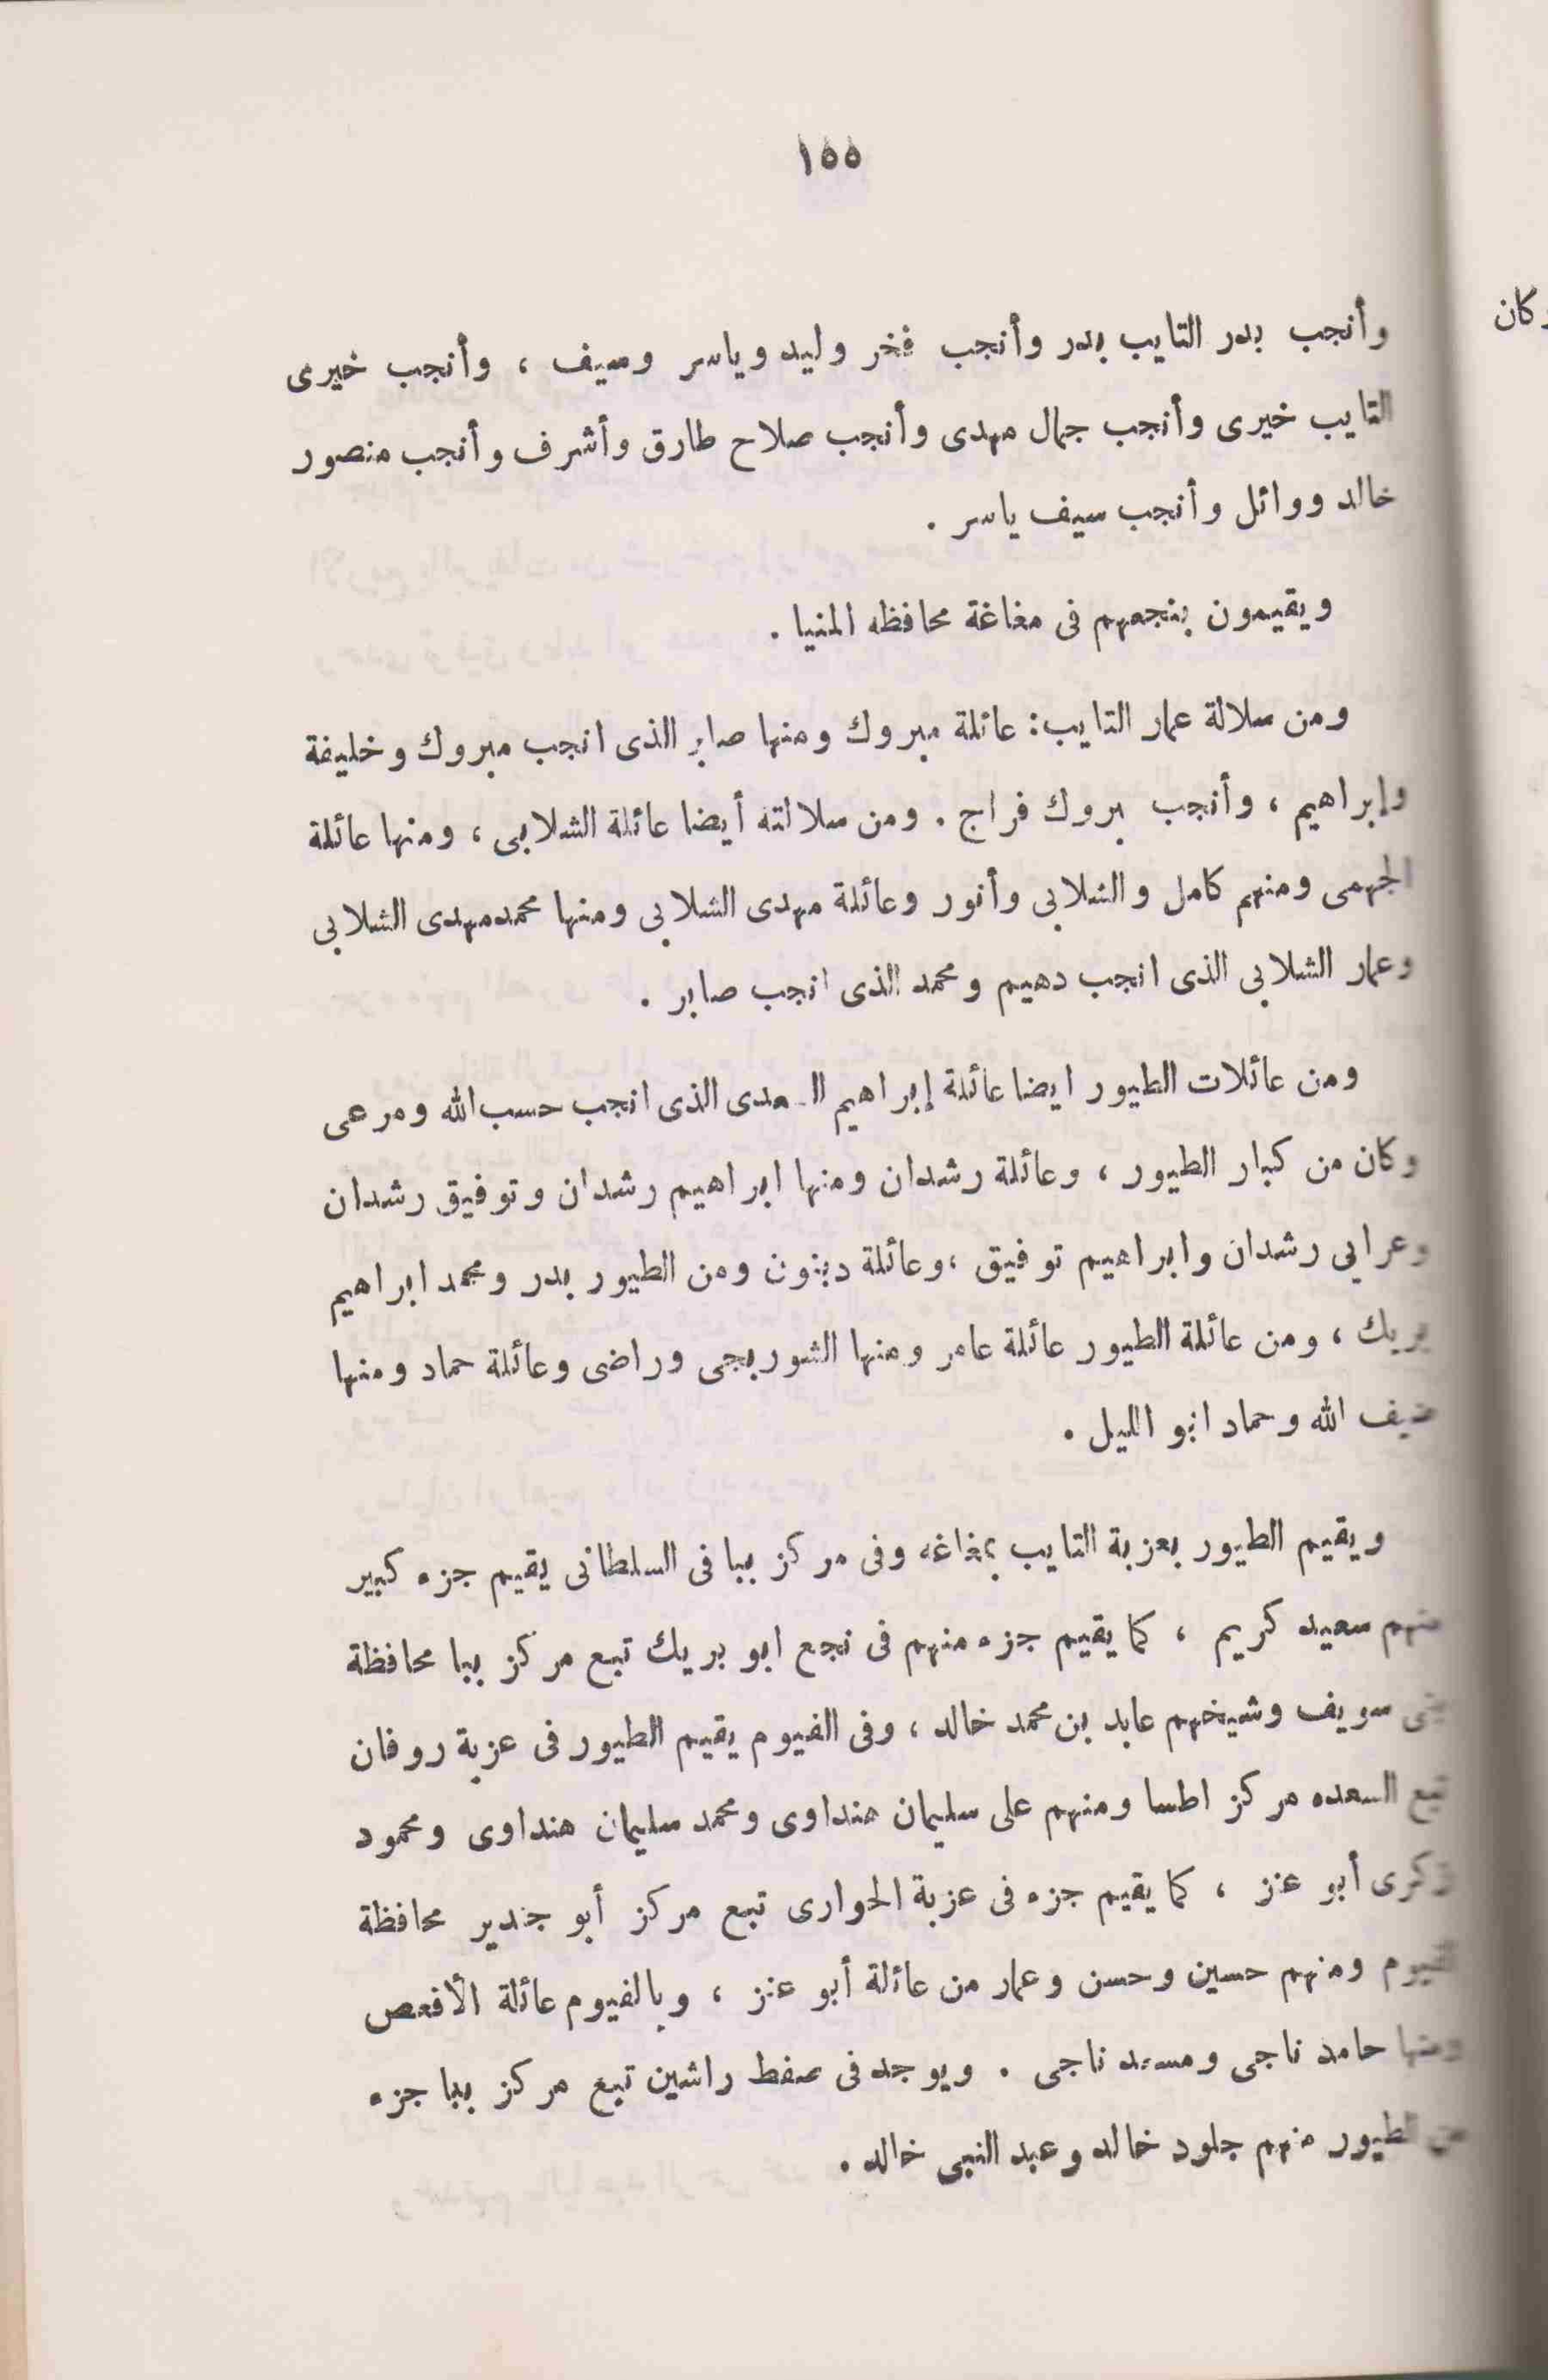 ١٥٥
وأنجب بدر التايب بدر وأنجب فخر وليد وياسر وسيف ، وأنجب خيرى
التايب خيرى وأنجب جمال مهدى وأنجب صلاح طارق وأشرف وأنجب منصور
خالد ووائل وأنجب سيف ياسر .
ويقيمون بنجعهم فى مغاغة محافظه المنيا .
ومن سلالة عمار التايب : عائلة مبروك ومنها صابر الذى انجب مبروك وخليفة
وإبراهيم ، وأنجب بروك فراج . ومن سلالته أيضا عائلة الشلابى ، ومنها عائلة
الجهمى ومنهم كامل والشلابى وأنور وعائلة مهدى الشلابى ومنها محمد مهدى الشلابى
وعمار الشلابى الذى انجب دهيم ومحمد الذى انجب صابر .
ومن عائلات الطيور ايضا عائلة إبراهيم الذى انجب حسب الله ومرعى
وكان من كبار الطيور ، وعائلة رشدان ومنها ابراهيم رشدان وتوفيق رشدان
وعرابى رشدان وابراهيم توفيق ، وعائلة دبنون ومن الطيور بدر ومحمد ابراهيم
بريك ، ومن عائلة الطيور عائلة عامر ومنها الشوربجى وراضى وعائلة حماد ومنها
ضيف الله وحماد ابو الليل .
ويقيم الطيور بعزبة التايب بمغاغه وفى مركز ببا فى السلطانى يقيم جزء كبير
منهم سعيد كريم ، كما يقيم جزء منهم فى نجع ابو بريك تبع مركز ببا محافظة
بنى سويف وشيخهم عابد بن محمد خالد ، وفى الفيوم يقيم الطيور فى عزبة روفان
تبع السعده مركز اطسا ومنهم على سليمان هنداوى ومحمد سليمان هنداوى ومحمود
زكرى أبو عنز ، كما يقيم جزء فى عزبة الحوارى تبع مركز أبو جندير محافظة
الفيوم ومنهم حسين وحسن وعمار من عائلة أبو عنز ، وبالفيوم عائلة الأفعص
ومنها حامد ناجى ومسعد ناجى . ويوجد فى صفط راشين تبع مركز ببا جزء
من الطيور منهم جلود خالد وعبد النبى خالد .
وكان